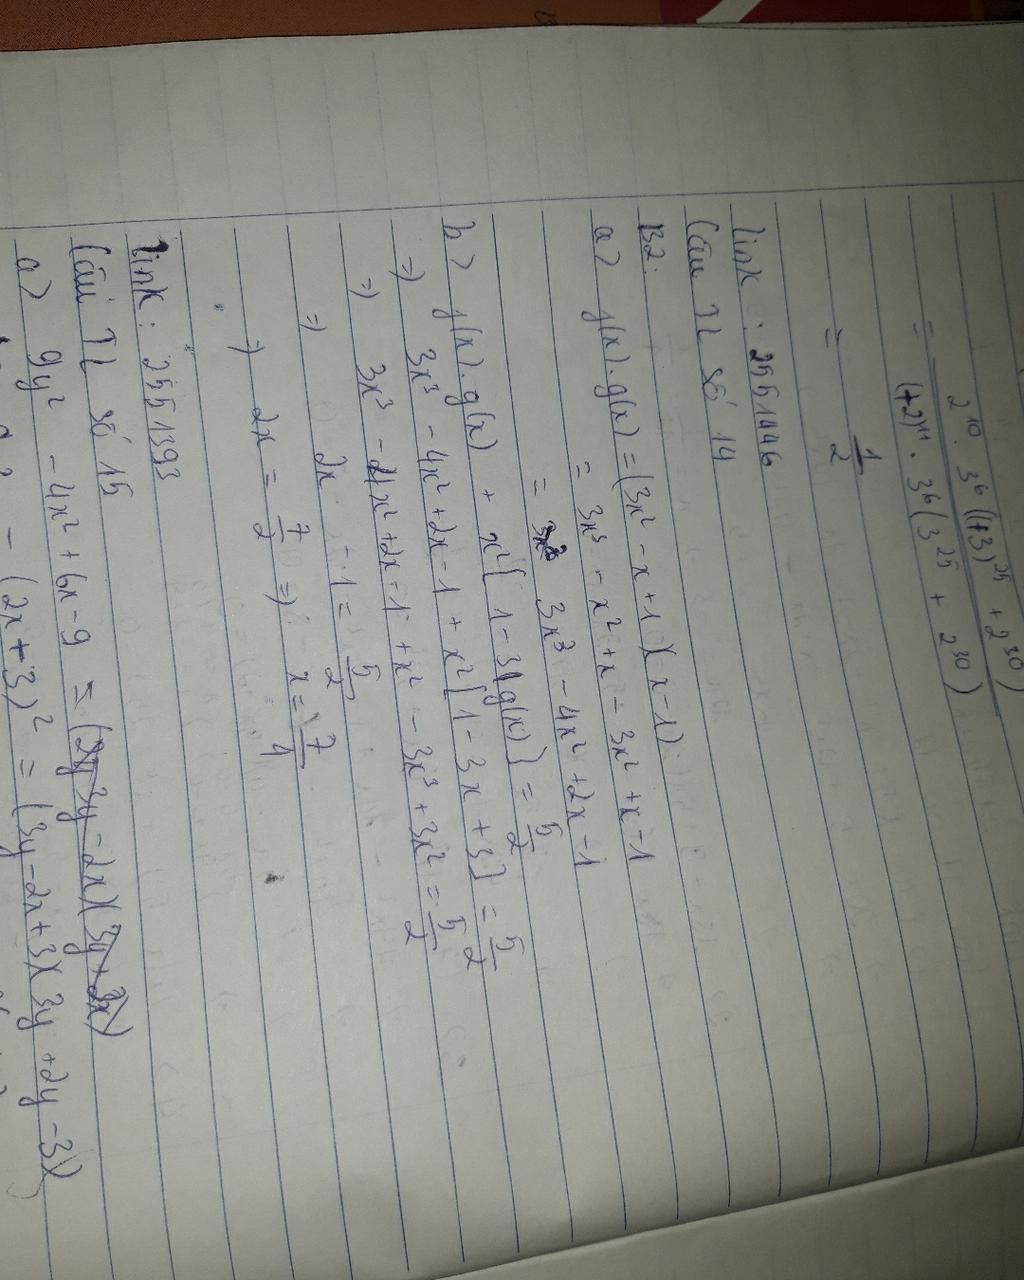 = 2^10 . 3^6 ((+3)^25 + 2^30) / (+2)^11 . 3^6 (3^25 + 2^30)
= 1/2
link : 2551446
Câu TL số 14
B2.
a> f(x).g(x) = (3x² - x + 1)(x - 1)
= 3x³ - x² + x - 3x² + x - 1
= 3x³ - 4x² + 2x - 1
b> f(x).g(x) + x²[1 - 3(g(x)] = 5/2
=> 3x³ - 4x² + 2x - 1 + x²[1 - 3x + 3] = 5/2
=> 3x³ - 4x² + 2x - 1 + x² - 3x³ + 3x² = 5/2
=> 2x - 1 = 5/2
=> 2x = 7/2 => x = 7/4
link : 2551393
Câu TL số 15
a> 9y² - 4x² + 6x - 9 = (3y - 2x)(3y + 2x)
- (2x + 3)² = (3y - 2x + 3)(3y + 2y - 3)